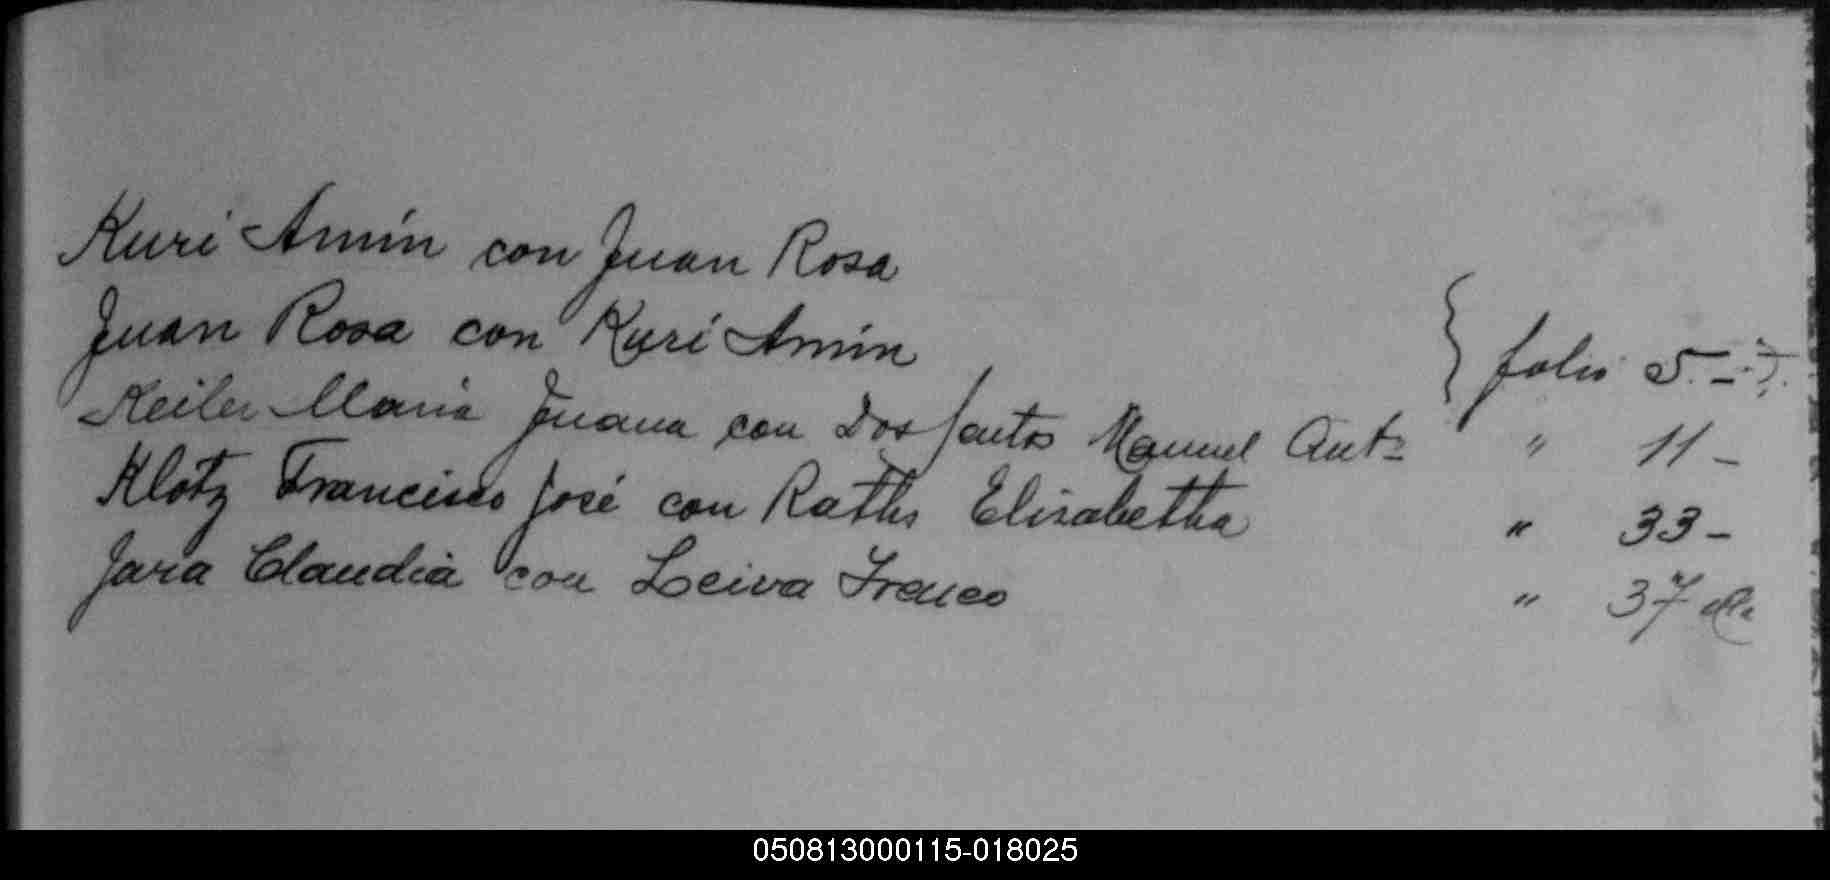 Kuri Amin con Juan Rosa
Juan Rosa con Kuri Amin } folio 5.-
Keiler Maria Juana con Dos Santos Manuel Anto " 11-
Klotz Francisco José con Raths Elisabetha " 33-
Jara Claudia con Leiva Ireneo " 37
050813000115-018025